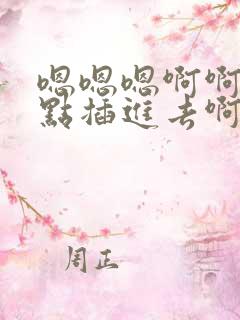 嗯嗯嗯啊啊
點插進去啊
周正